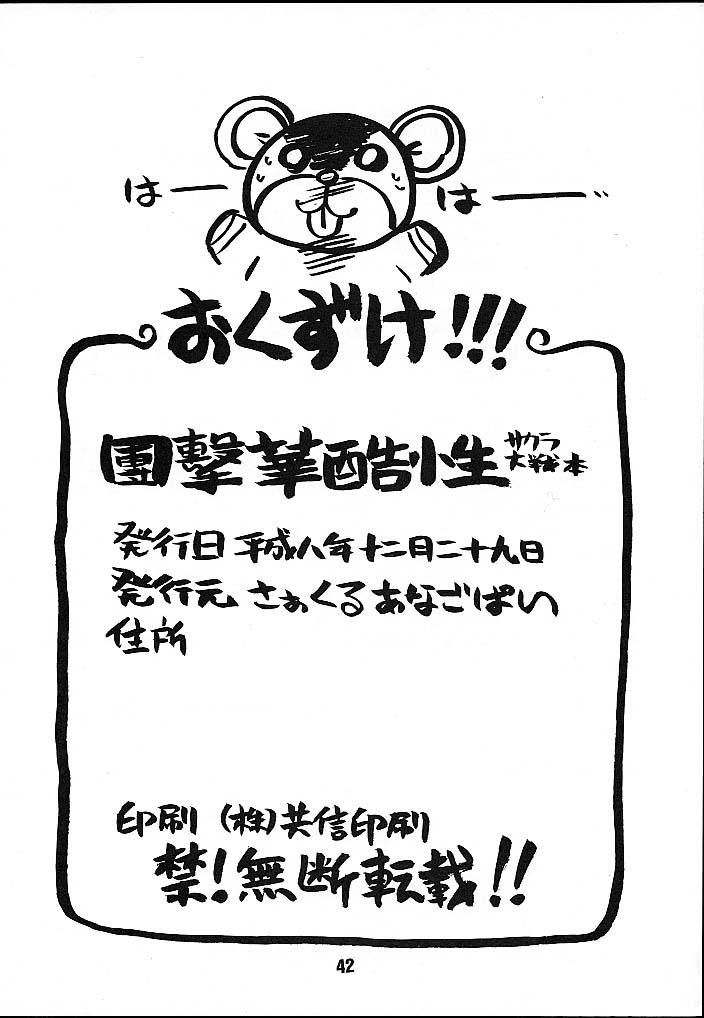 はー
はー
おくずけ!!!
團撃華酷小生
サクラ
大戦本
発行日 平成八年十二月二十九日
発行元 さぁくるあなごぱい
住所
印刷 (株)共信印刷
禁!無断転載!!
42